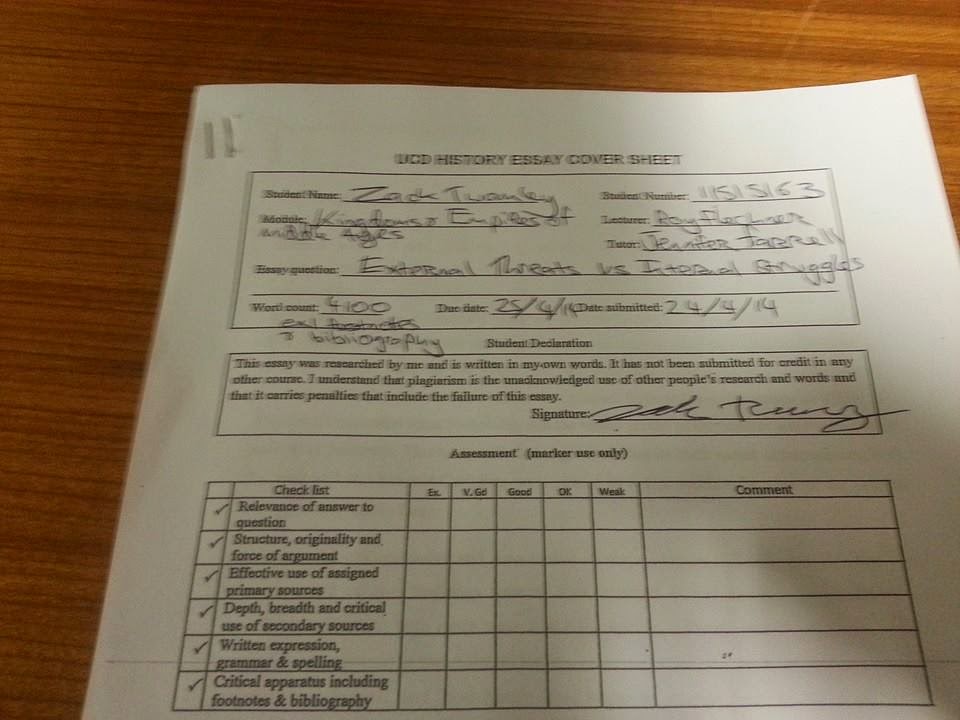 11
UCD HISTORY ESSAY COVER SHEET
Student Name: Zack Twamley Student Number: 11515163
Module: Kingdoms & Empires of Lecturer: Roy Flechner
Middle Ages
Tutor: Jennifer Farrell
Essay question: External Threats vs Internal Struggles
Word count: 4100 Due date: 25/4/14 Date submitted: 24/4/14
excl footnotes
& bibliography
Student Declaration
This essay was researched by me and is written in my own words. It has not been submitted for credit in any
other course. I understand that plagiarism is the unacknowledged use of other people's research and words and
that it carries penalties that include the failure of this essay.
Signature: Zack
Assessment (marker use only)
Check list Ex. V. Gd Good OK Weak Comment
✓ Relevance of answer to
question
✓ Structure, originality and
force of argument
✓ Effective use of assigned
primary sources
✓ Depth, breadth and critical
use of secondary sources
✓ Written expression,
grammar & spelling
✓ Critical apparatus including
footnotes & bibliography